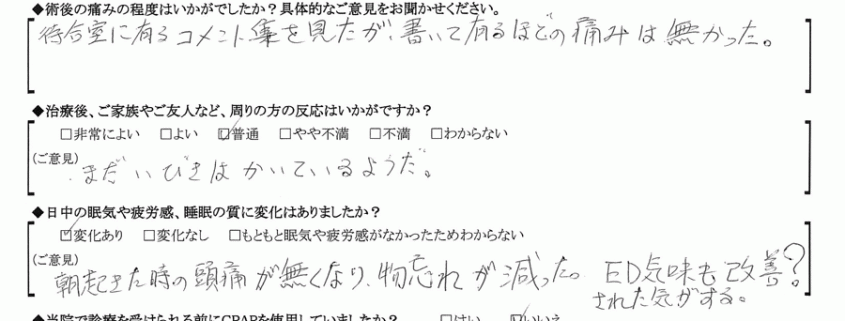 ◆術後の痛みの程度はいかがでしたか？具体的なご意見をお聞かせください。
待合室に有るコメント集を見たが、書いて有るほどの痛みは無かった。
◆治療後、ご家族やご友人など、周りの方の反応はいかがですか？
□非常によい □よい ☑普通 □やや不満 □不満 □わからない
(ご意見)
まだいびきはかいているようだ。
◆日中の眠気や疲労感、睡眠の質に変化はありましたか？
☑変化あり □変化なし □もともと眠気や疲労感がなかったためわからない
(ご意見)
朝起きた時の頭痛が無くなり、物忘れが減った。 ED気味も改善?
された気がする。
◆当院で診療を受けられる前にCPAPを使用していましたか？ □はい ☑いいえ